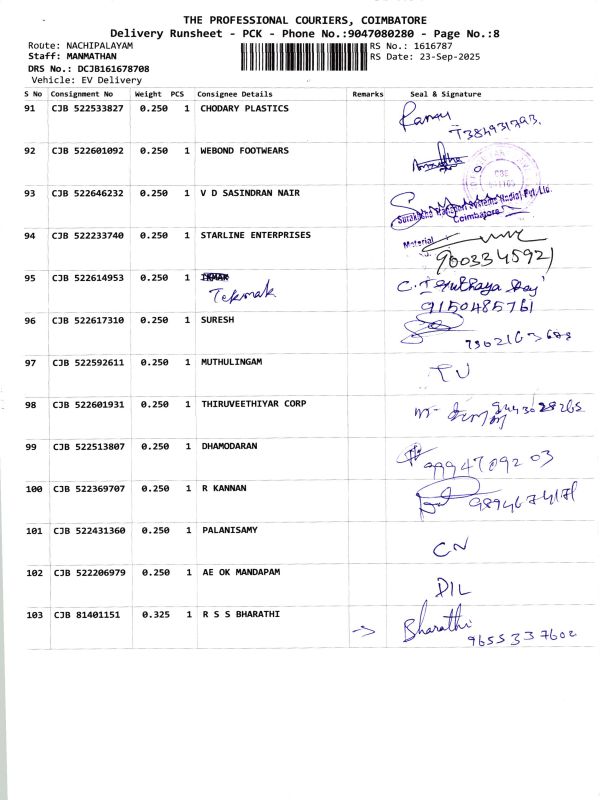 THE PROFESSIONAL COURIERS, COIMBATORE
Delivery Runsheet - PCK - Phone No.:9047080280 - Page No.:8
Route: NACHIPALAYAM RS No.: 1616787
Staff: MANMATHAN RS Date: 23-Sep-2025
DRS No.: DCJB161678708
Vehicle: EV Delivery
S No Consignment No Weight PCS Consignee Details Remarks Seal & Signature
91 CJB 522533827 0.250 1 CHODARY PLASTICS
92 CJB 522601092 0.250 1 WEBOND FOOTWEARS
93 CJB 522646232 0.250 1 V D SASINDRAN NAIR
Coimbatore
94 CJB 522233740 0.250 1 STARLINE ENTERPRISES
Material
9003345921
95 CJB 522614953 0.250 1
Tekmak
9150485761
96 CJB 522617310 0.250 1 SURESH
97 CJB 522592611 0.250 1 MUTHULINGAM
98 CJB 522601931 0.250 1 THIRUVEETHIYAR CORP
99 CJB 522513807 0.250 1 DHAMODARAN
9994709203
100 CJB 522369707 0.250 1 R KANNAN
9894674171
101 CJB 522431360 0.250 1 PALANISAMY
CN
102 CJB 522206979 0.250 1 AE OK MANDAPAM
DIL
103 CJB 81401151 0.325 1 R S S BHARATHI → Bharathi
9655337602